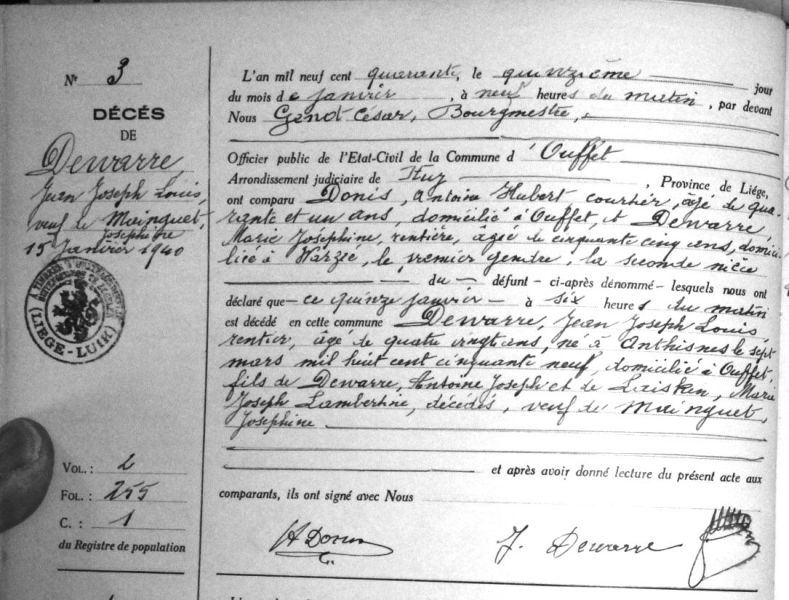 N° 3
DÉCÉS
DE
Dewarre
Jean Joseph Louis,
veuf de Mainguet,
Josephine
15 Janvier 1940
(LIÈGE-LUIK)
VOL. : 2
FOL. : 255
C. : 1
du Registre de population
L'an mil neuf cent quarante, le quinzième jour
du mois de janvier, à neuf heures du matin, par devant
Nous Genot César, Bourgmestre,
Officier public de l'Etat-Civil de la Commune d'Ouffet
Arrondissement judiciaire de Huy, Province de Liége,
ont comparu Donis, Antoine Hubert courtier, âgé de qua-
rante et un ans, domicilié à Ouffet, et Dewarre,
Marie Josephine, rentière, âgée de cinquante cinq ans, domici-
liée à Harzé, le premier gendre, la seconde nièce
du défunt - ci-après dénommé - lesquels nous ont
déclaré que - ce quinze janvier - à six heures du matin
est décédé en cette commune Dewarre, Jean Joseph Louis
rentier, âgé de quatre vingt ans, né à Anthisnes le sept
mars mil huit cent cinquante neuf, domicilié à Ouffet,
fils de Dewarre, Antoine Joseph et de Marie
Joseph Lambertine, décédés, veuf de Mainguet,
Josephine.
et après avoir donné lecture du présent acte aux
comparants, ils ont signé avec Nous
A Donis
J. Dewarre